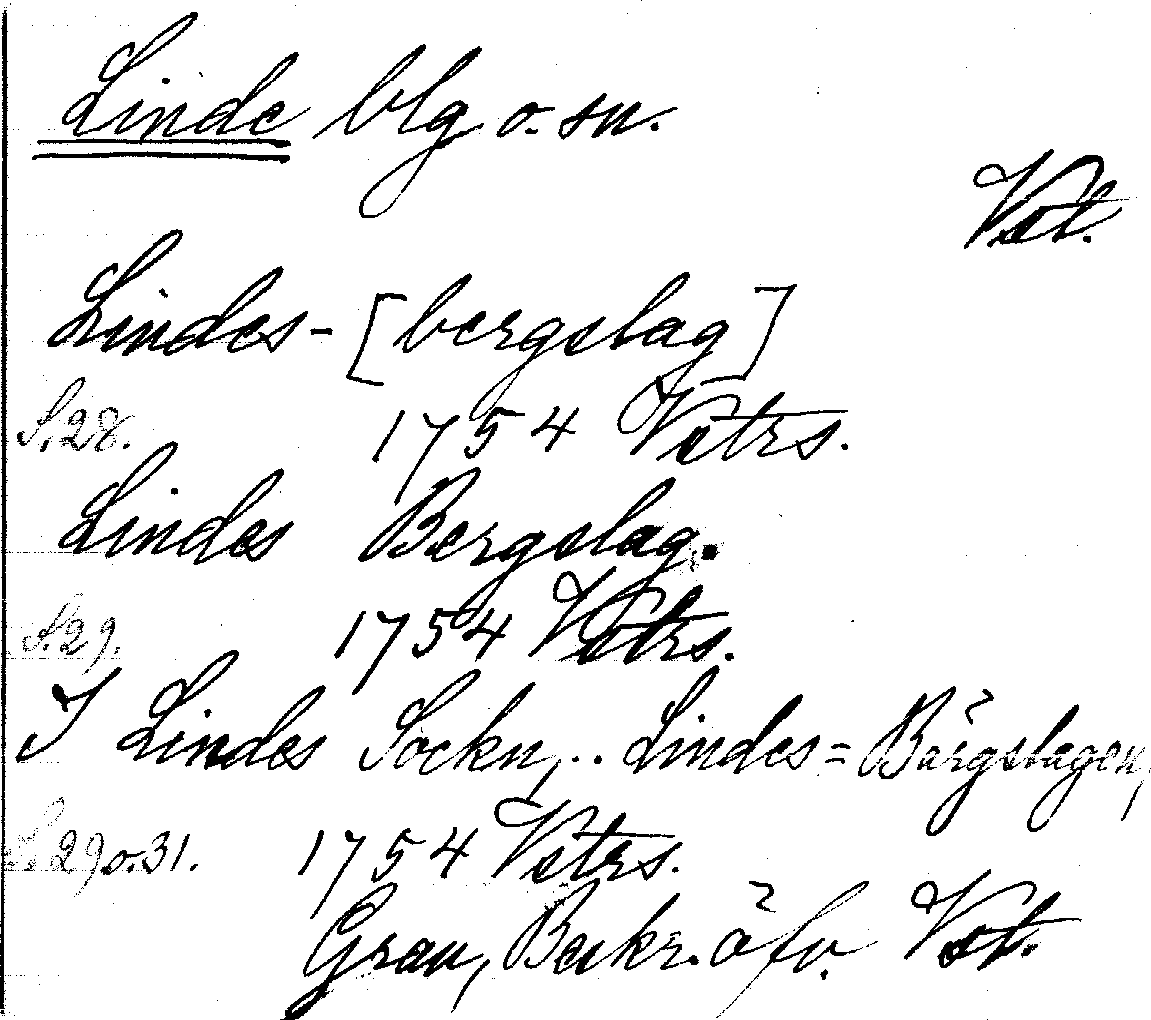 Linde blg o. sn.
Vst.
Lindes-[bergslag]
S. 28. 1754 Vstrs.
Lindes Bergslag.
S. 29. 1754 Vstrs.
I Lindes Sockn, .. Lindes=Bärgslagen,
S. 29 o. 31. 1754 Vstrs.
Grau, Beskr. öfv. Vst.